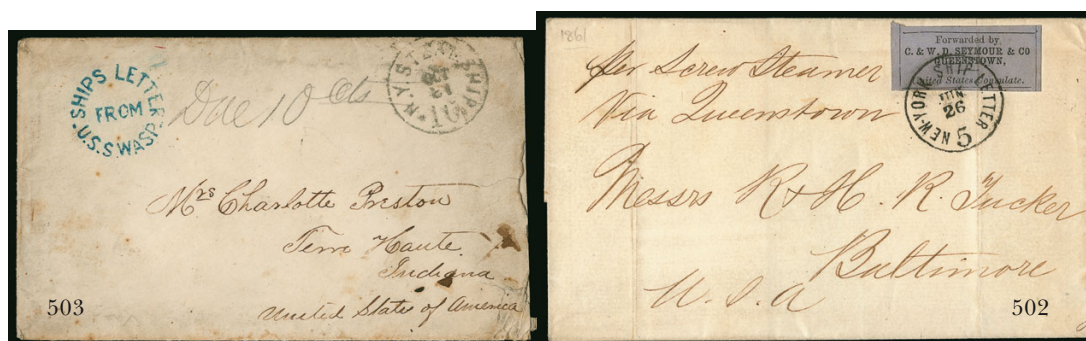 SHIPS LETTER
FROM
U.S.S. WASP
Due 10 Cts
N.Y. STEAMSHIP
OCT
10
Mrs Charlotte Preston
Terre Haute
Indiana
United States of America
503
1861
Forwarded by
C. & W. D. SEYMOUR & CO
QUEENSTOWN,
United States Consulate.
NEW-YORK SHIP LETTER
JUN
26
5
per Screw Steamer
Via Queenstown
Messrs R & H. R. Tucker
Baltimore
U. S. A
502